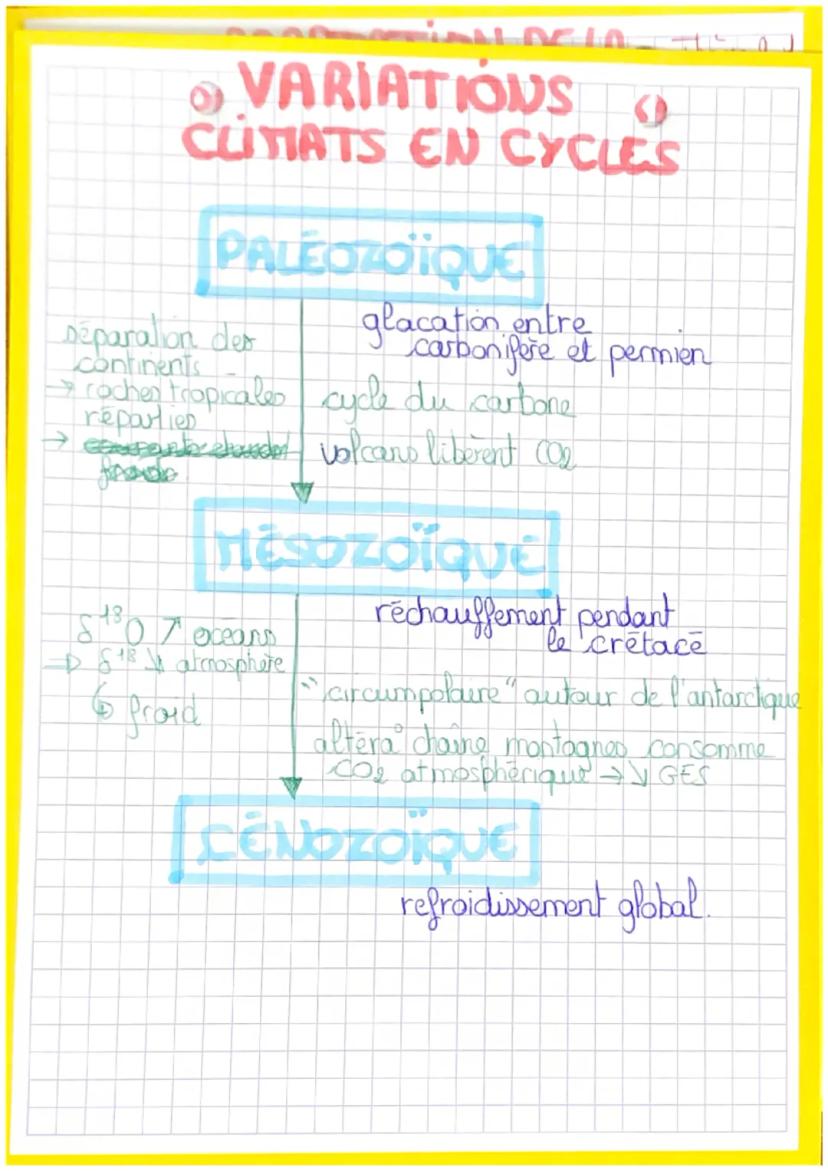 VARIATIONS
CLIMATS EN CYCLES
PALÉOZOÏQUE
glacation entre
carbonifère et permien
séparation des
continents
→ roches tropicales
réparties
→
cycle du carbone
volcans libèrent CO2
MÉSOZOÏQUE
réchauffement pendant
le crétacé
δ18O ↗ océans
⇒ δ18 ↘ atmosphère
↳ froid
"circumpolaire" autour de l'antarctique
altéra° chaîne montagnes consomme
CO2 atmosphérique → ↘ GES
CÉNOZOÏQUE
refroidissement global.